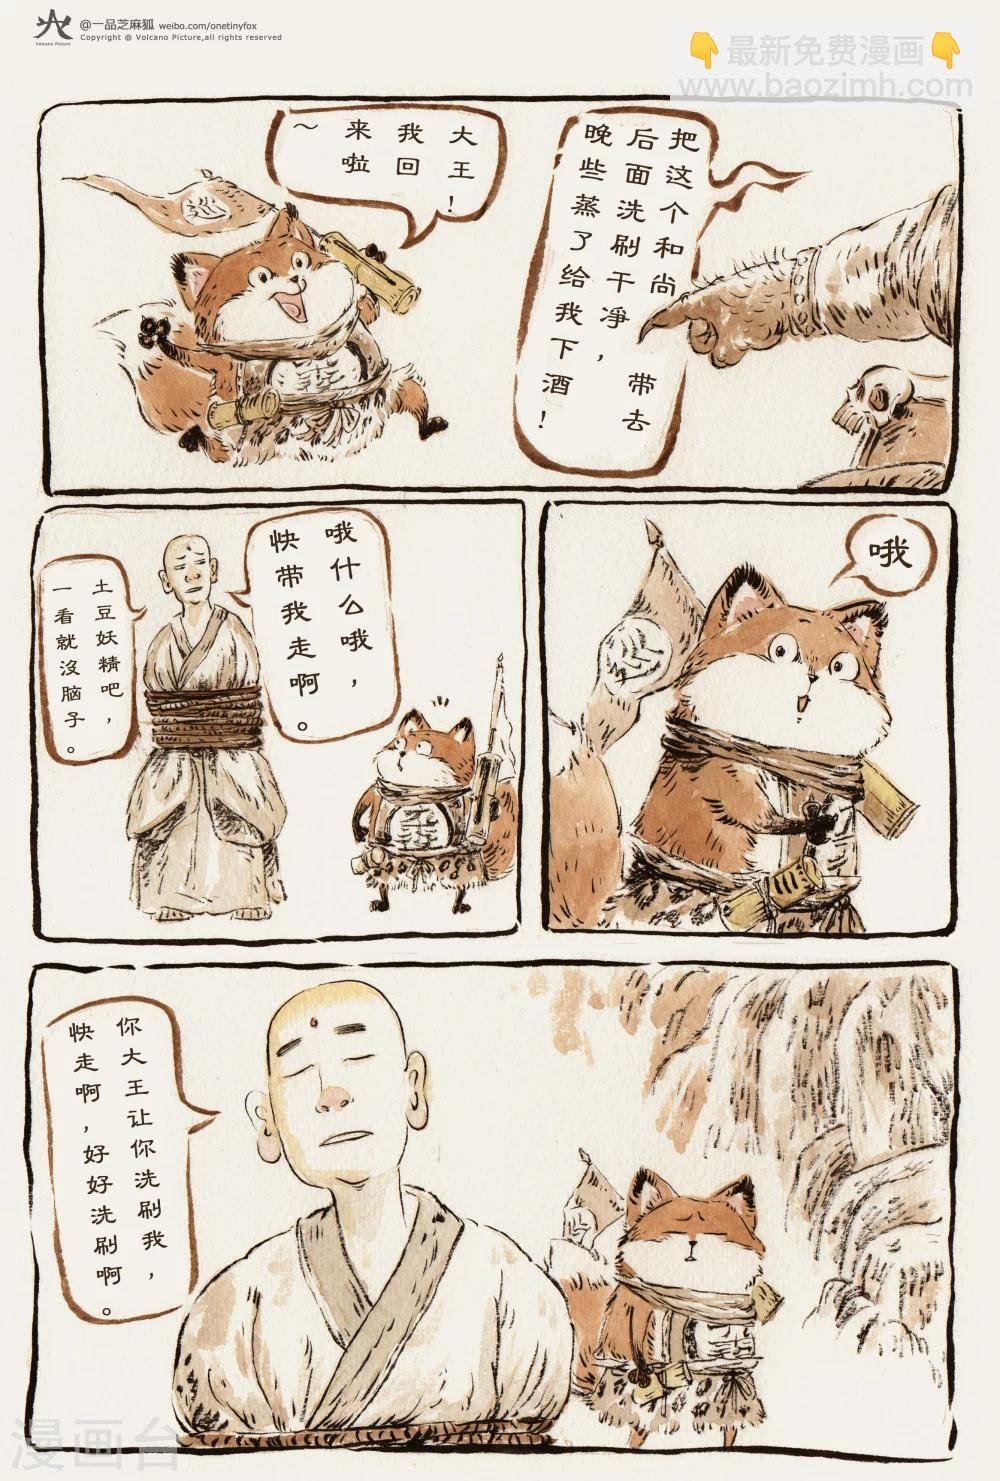 @一品芝麻狐 weibo.com/onetinyfox
Volcano Picture
Copyright @ Volcano Picture,all rights reserved
👇最新免费漫画👇
www.baozimh.com
大王!
我回
来啦
~
巡
把这个和尚
带去
后面洗刷干净,
晚些蒸了给我下酒!
哦什么哦,
快带我走啊。
土豆妖精吧,
一看就沒脑子。
哦
你大王让你洗刷我,
快走啊,好好洗刷啊。
漫画台